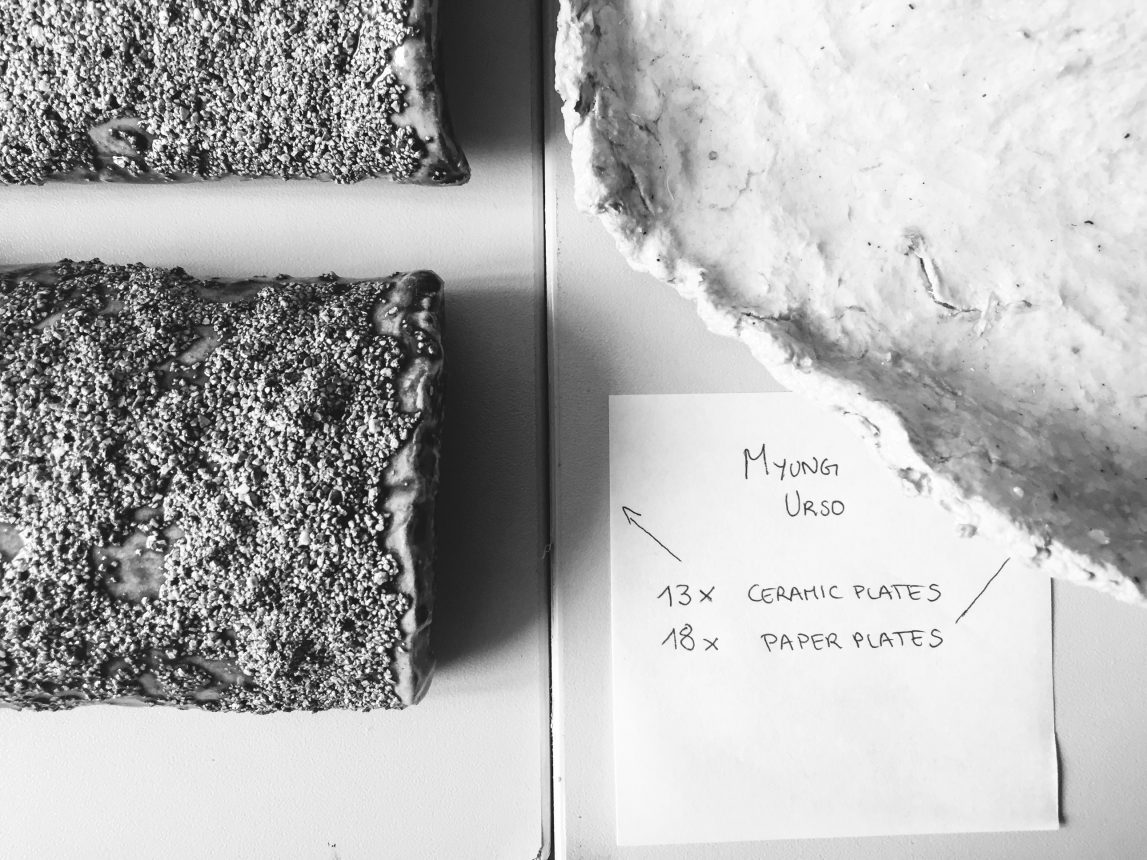 Myung
Urso
13x ceramic plates
18x paper plates